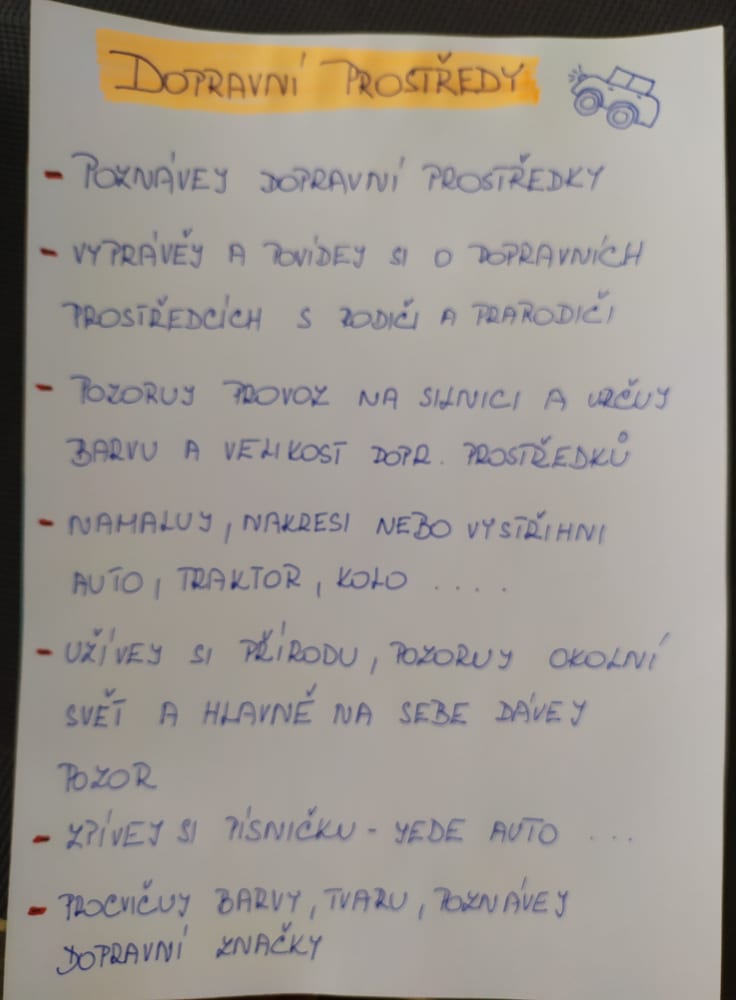 DOPRAVNÍ PROSTŘEDY
- POZNÁVEJ DOPRAVNÍ PROSTŘEDKY
- VYPRÁVĚJ A POVÍDEJ SI O DOPRAVNÍCH
PROSTŘEDCÍCH S RODIČI A PRARODIČI
- POZORUJ PROVOZ NA SILNICI A URČUJ
BARVU A VELIKOST DOPR. PROSTŘEDKŮ
- NAMALUJ, NAKRESI NEBO VYSTŘIHNI
AUTO, TRAKTOR, KOLO ....
- UŽÍVEJ SI PŘÍRODU, POZORUJ OKOLNÍ
SVĚT A HLAVNĚ NA SEBE DÁVEJ
POZOR
- ZPÍVEJ SI PÍSNIČKU - JEDE AUTO ...
- PROCVIČUJ BARVY, TVARU, POZNÁVEJ
DOPRAVNÍ ZNAČKY